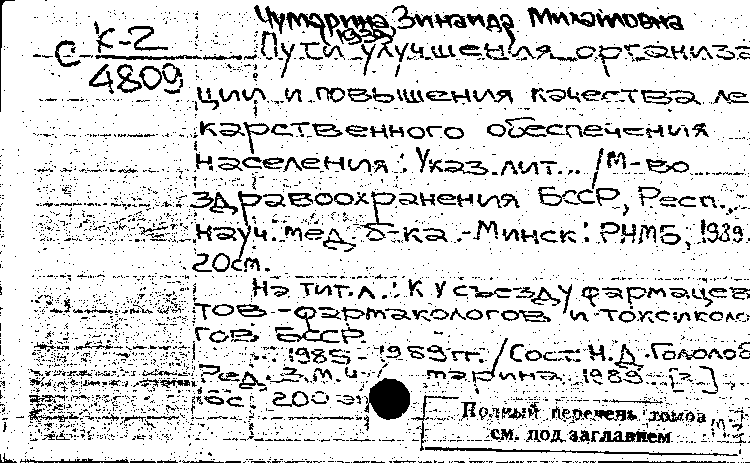 Чумарина Зинаида Михайловна
1938
С К-2
4809
Пути улучшения организа
ции и повышения качества ле
карственного обеспечения
населения: Указ. лит... / М-во
здравоохранения БССР, Респ.
науч. мед. б-ка. - Минск: РНМБ, 1989.
20см.
На тит. л.: К V съезду фармацев
тов - фармакологов и токсиколо
гов БССР
... 1985-1989 гг. / Сост. Н.Д. Гололоб
Ред. З.М. 1989. [2]
200 э
Полный перечень томов
см. под заглавием